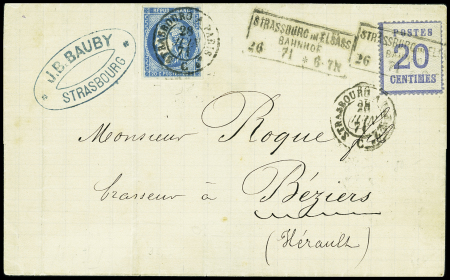 J.B. BAUBY
STRASBOURG
STRASSBURG IM ELSASS
BAHNHOF
26 71 6-7N
POSTES
20
CENTIMES
STRASBOURG
Monsieur Roque
brasseur à Béziers
(Hérault)